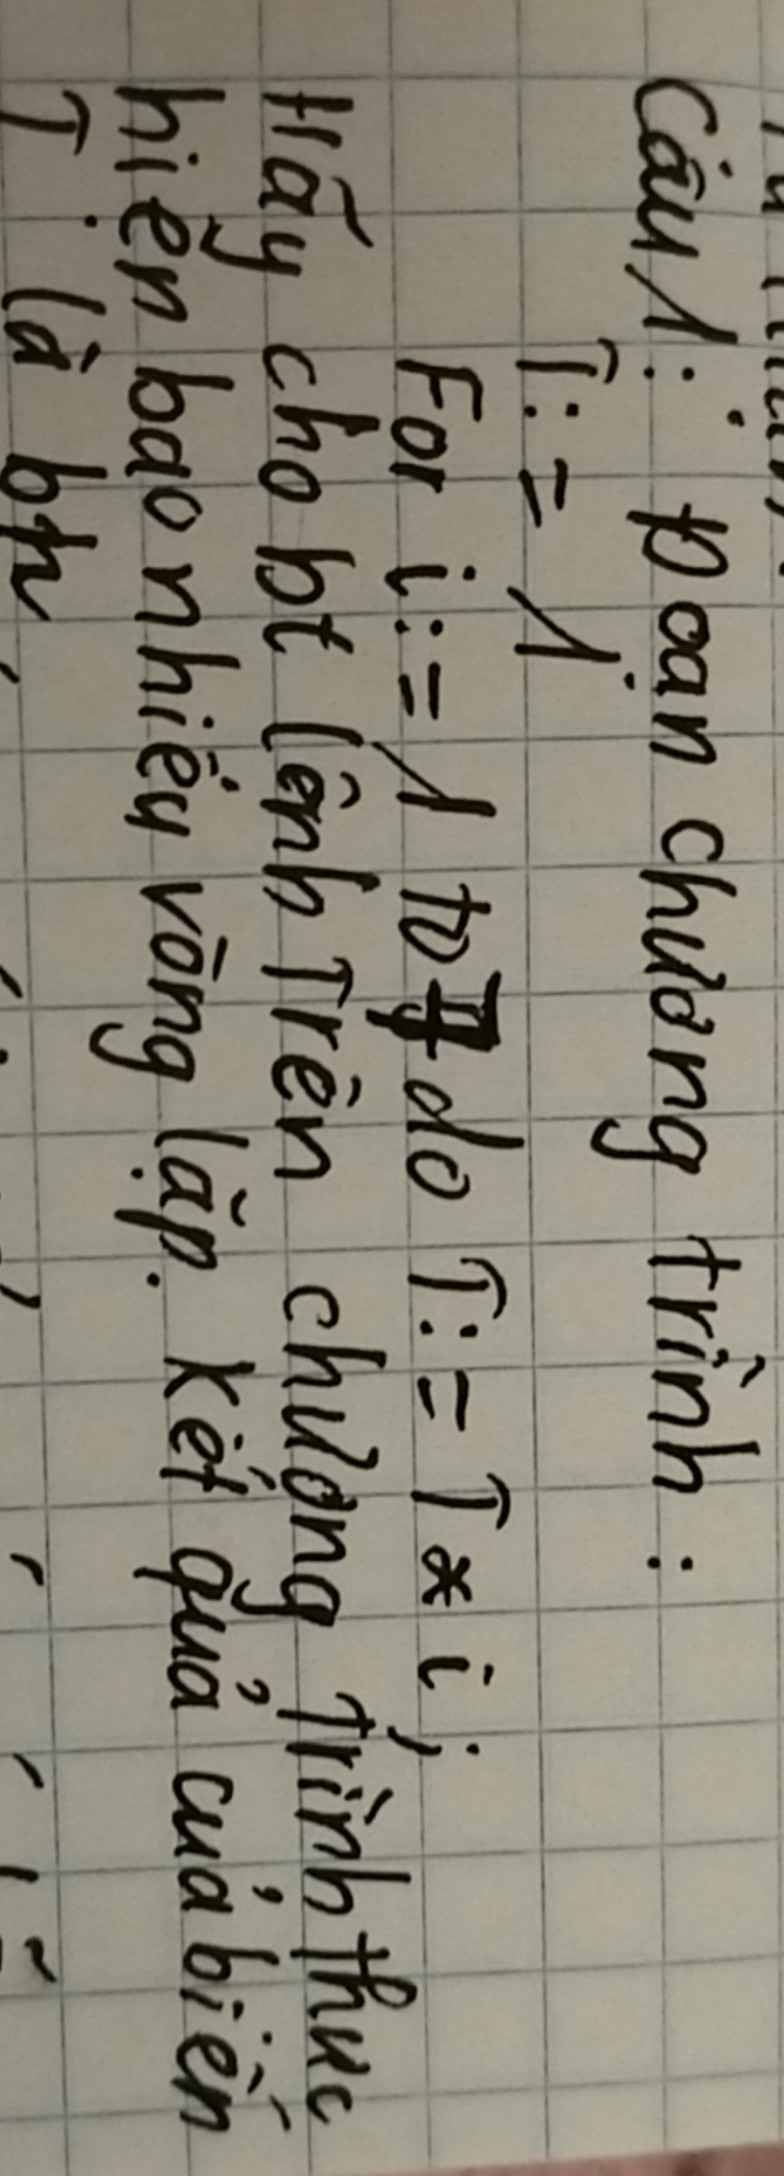 Câu 1: Đoạn chương trình:
T:= 1
For i:= 1 to do T:= T * i;
Hãy cho bt lệnh Trên chương trình thực
hiện bao nhiêu vòng lặp. kết quả của biến
T là bn